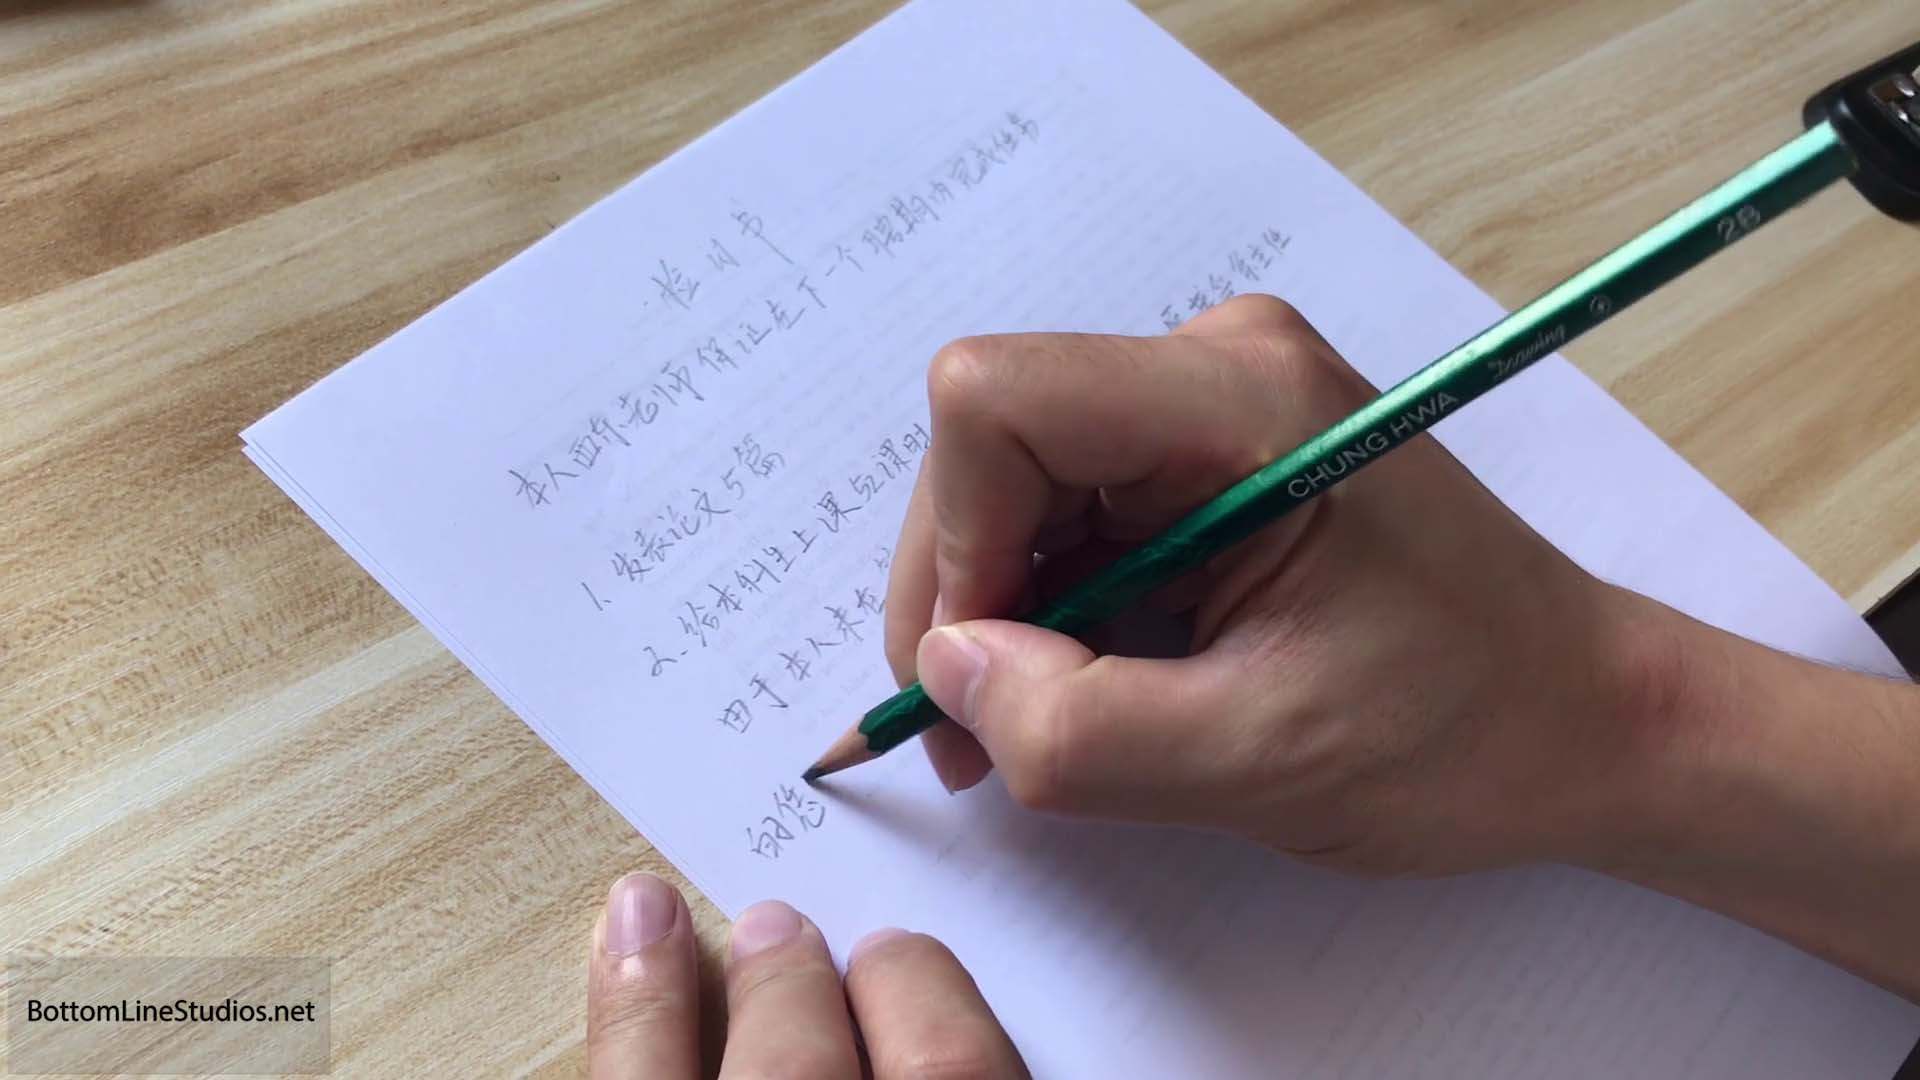 检讨书
本人西东老师保证在下一个聘期内完成任务
1、发表论文5篇
2、给本科生上课52课时
由于本人未在
系主任
向您
CHUNG HWA
Drawing
2B
BottomLineStudios.net